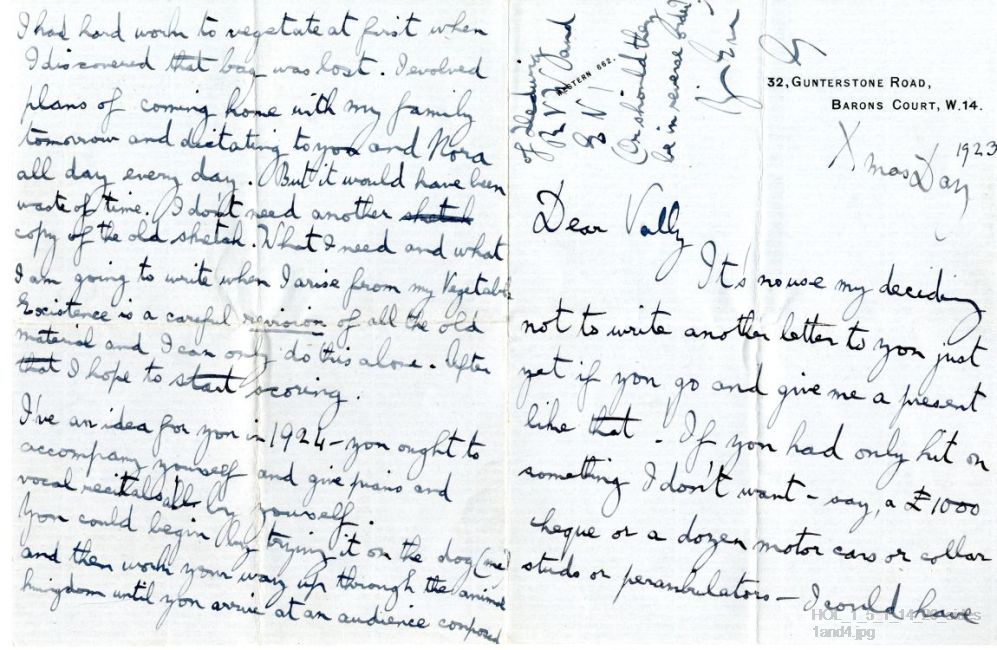 32, GUNTERSTONE ROAD,
BARONS COURT, W.14.
WESTERN 662.
Xmas Day
1923
Dear Vally
It's no use my deciding
not to write another letter to you just
yet if you go and give me a present
like that. If you had only hit on
something I don't want – say, a £1000
cheque or a dozen motor cars or collar
studs or perambulators – I could have
I had hard work to vegetate at first when
I discovered that bag was lost. I evolved
plans of coming home with my family
tomorrow and dictating to you and Nora
all day every day. But it would have been
waste of time. I don't need another sketch
copy of the old sketch. What I need and what
I am going to write when I arise from my Vegetable
Existence is a careful revision of all the old
material and I can only do this alone. After
that I hope to start scoring.
I've an idea for you in 1924 – you ought to
accompany yourself and give piano and
vocal recitals all by yourself.
You could begin by trying it on the dog (me)
and then work your way up through the animal
kingdom until you arrive at an audience composed
of
and
Or should they
be in reverse order?
HOL_1_5_1_14726_sides
1and4.jpg